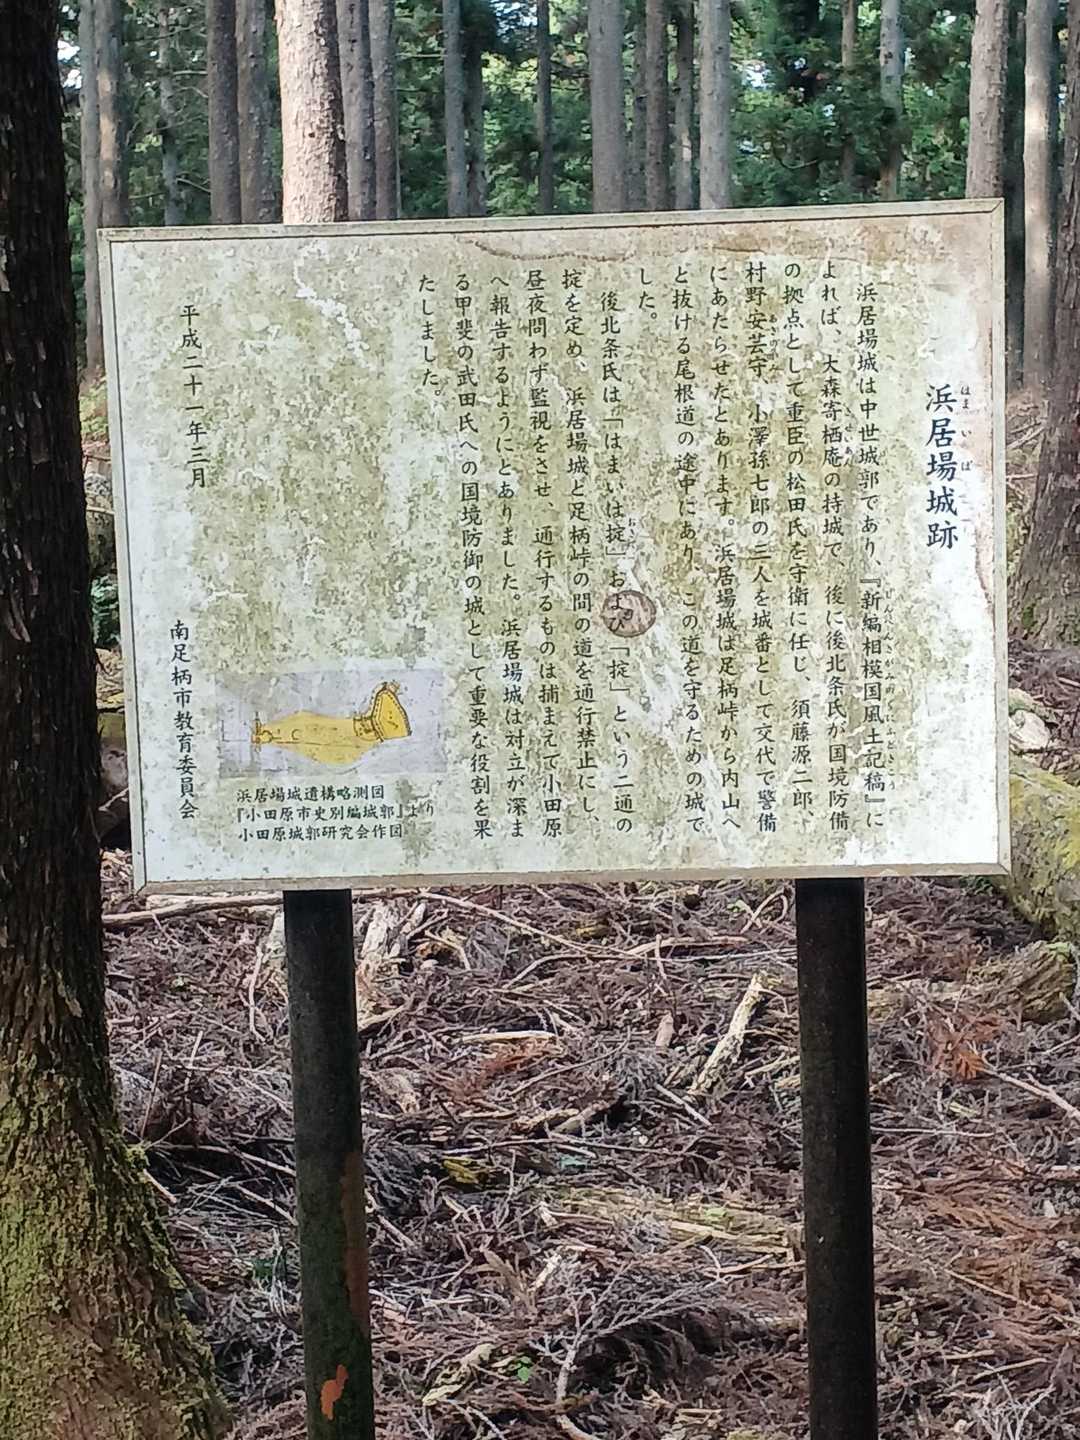 浜居場城跡
はまいばじょうせき
浜居場城は中世城郭であり、『新編相模国風土記稿』に
よれば、大森寄栖庵の持城で、後に後北条氏が国境防備
の拠点として重臣の松田氏を守衛に任じ、須藤源二郎、
村野安芸守、小澤孫七郎の三人を城番として交代で警備
にあたらせたとあります。浜居場城は足柄峠から内山へ
と抜ける尾根道の途中にあり、この道を守るための城で
した。
後北条氏は「はまいは掟」および「掟」という二通の
掟を定め、浜居場城と足柄峠の間の道を通行禁止にし、
昼夜問わず監視をさせ、通行するものは捕まえて小田原
へ報告するようにとありました。浜居場城は対立が深ま
る甲斐の武田氏への国境防御の城として重要な役割を果
たしました。
浜居場城遺構略測図
『小田原市史別編城郭』より
小田原城郭研究会作図
平成二十一年三月
南足柄市教育委員会